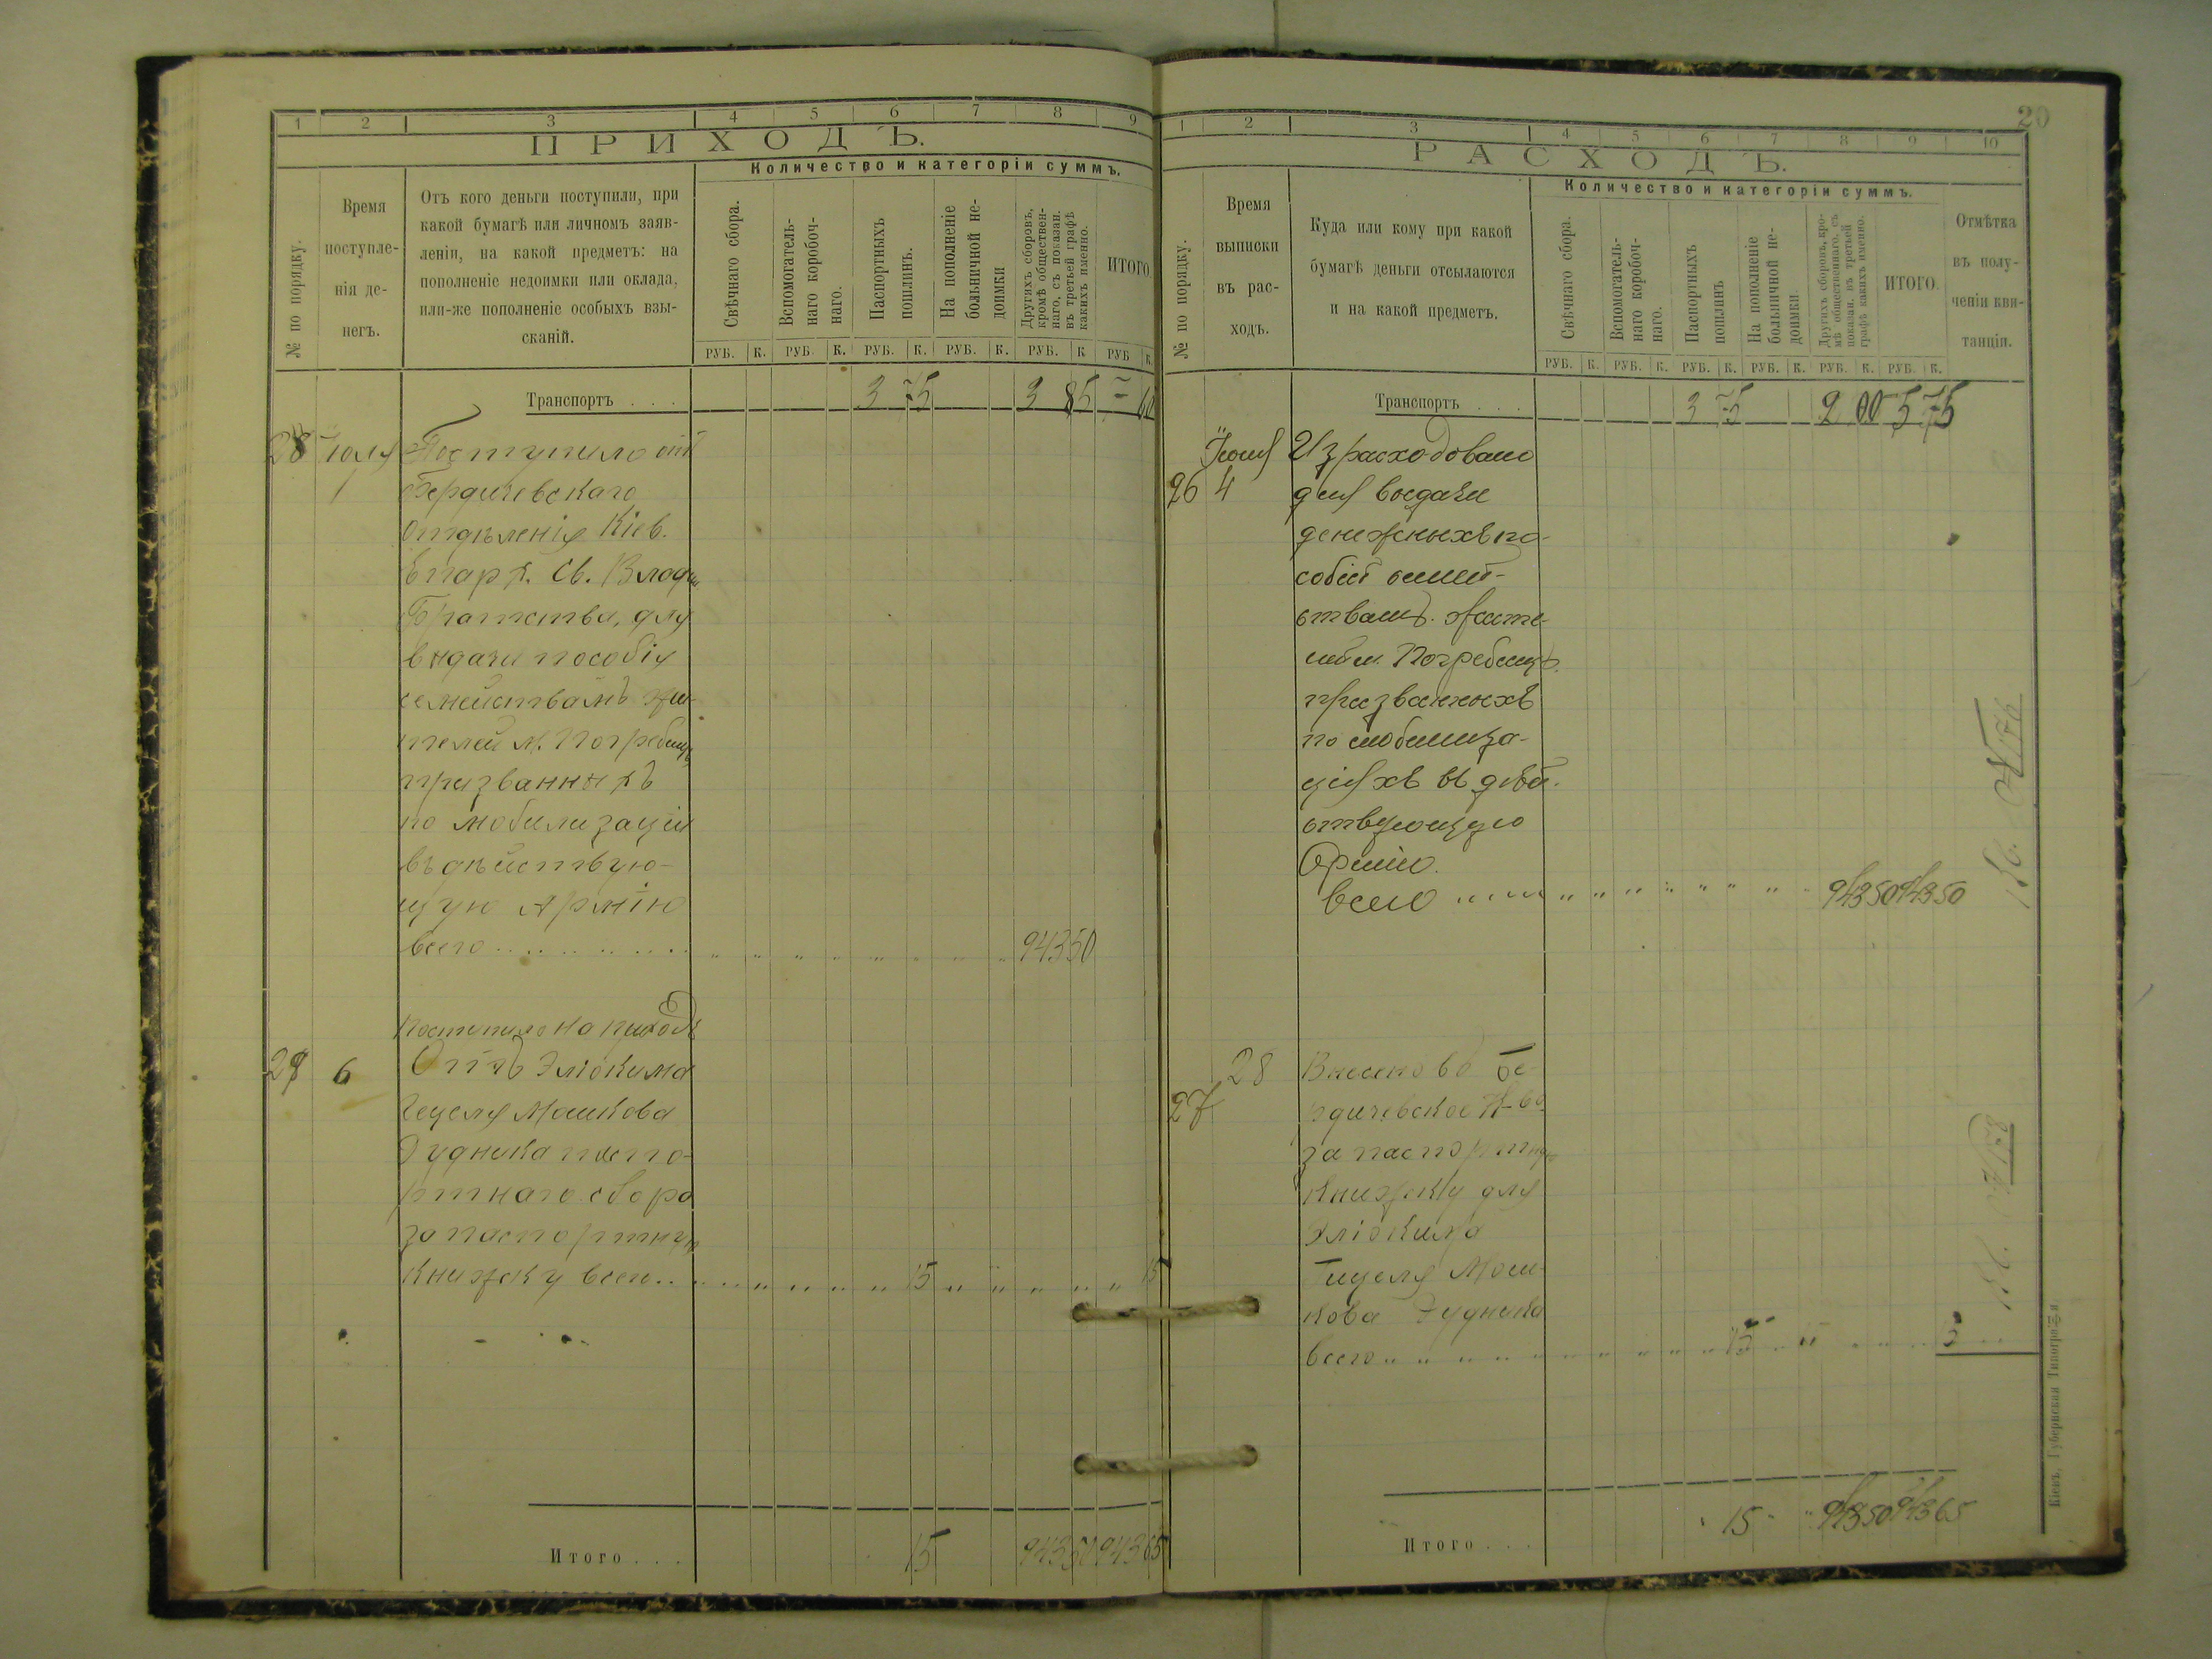 1 2 3 4 5 6 7 8 9
ПРИХОДЪ.
Количество и категоріи суммъ.
№ по порядку.
Время
поступле-
нія де-
негъ.
Отъ кого деньги поступили, при
какой бумагѣ или личномъ заяв-
леніи, на какой предметъ: на
пополненіе недоимки или оклада,
или-же пополненіе особыхъ взы-
сканій.
Свѣчнаго сбора.
Вспомогатель-
наго коробоч-
наго.
Паспортныхъ
пошлинъ.
На пополненіе
больничной не-
доимки
Другихъ сборовъ,
кромѣ обществен-
наго, съ показан.
въ третьей графѣ
какихъ именно.
ИТОГО.
РУБ. К. РУБ. К. РУБ. К. РУБ. К. РУБ. К РУБ К.
Транспортъ . . . 3 75 3 85 7 60
28 Іюля Поступило отъ
1 Бердичевскаго
Отдѣленія Кіев.
Епарх. Св. Влади
Братства, для
выдачи пособія
семействамъ жи-
телей м. Погребищъ
призванныхъ
по мобилизаціи
въ дѣйствую-
щую Армію
всего . . . . . . . . . 943 50
Поступило на приходъ
29 6 Отъ Эліокима
Гецеля Мошкова
Дудника паспо-
ртнаго сбора
за паспортную
Книжку всего . . 15 15
Итого . . . 15 943 50 943 65
20
1 2 3 4 5 6 7 8 9 10
РАСХОДЪ.
Количество и категоріи суммъ.
№ по порядку.
Время
выписки
въ рас-
ходъ.
Куда или кому при какой
бумагѣ деньги отсылаются
и на какой предметъ.
Свѣчнаго сбора.
Вспомогатель-
наго коробоч-
наго.
Паспортныхъ
пошлинъ
На пополненіе
больничной не-
доимки.
Другихъ сборовъ, кро-
мѣ общественнаго, съ
показан. въ третьей
графѣ какихъ именно.
ИТОГО.
Отмѣтка
въ полу-
ченіи кви-
танціи.
РУБ. К. РУБ. К. РУБ. К. РУБ. К. РУБ. К. РУБ. К.
Транспортъ . . . 3 75 2 00 5 75
Іюля Израсходовано
26 4 для выдачи
денежныхъ по-
собій семей-
ствамъ жите-
лей м. Погребищъ
призванныхъ
по мобилиза-
ціяхъ въ дѣй-
ствующую
Армію.
всего 943 50 943 50
28 Внесено въ Бе-
27 рдичевское К-во
за паспортную
Книжку для
Эліокима
Гецеля Мош-
кова Дудника
всего 15
Итого . . . 15 943 50 943 65
Кіевъ, Губернская Типографія